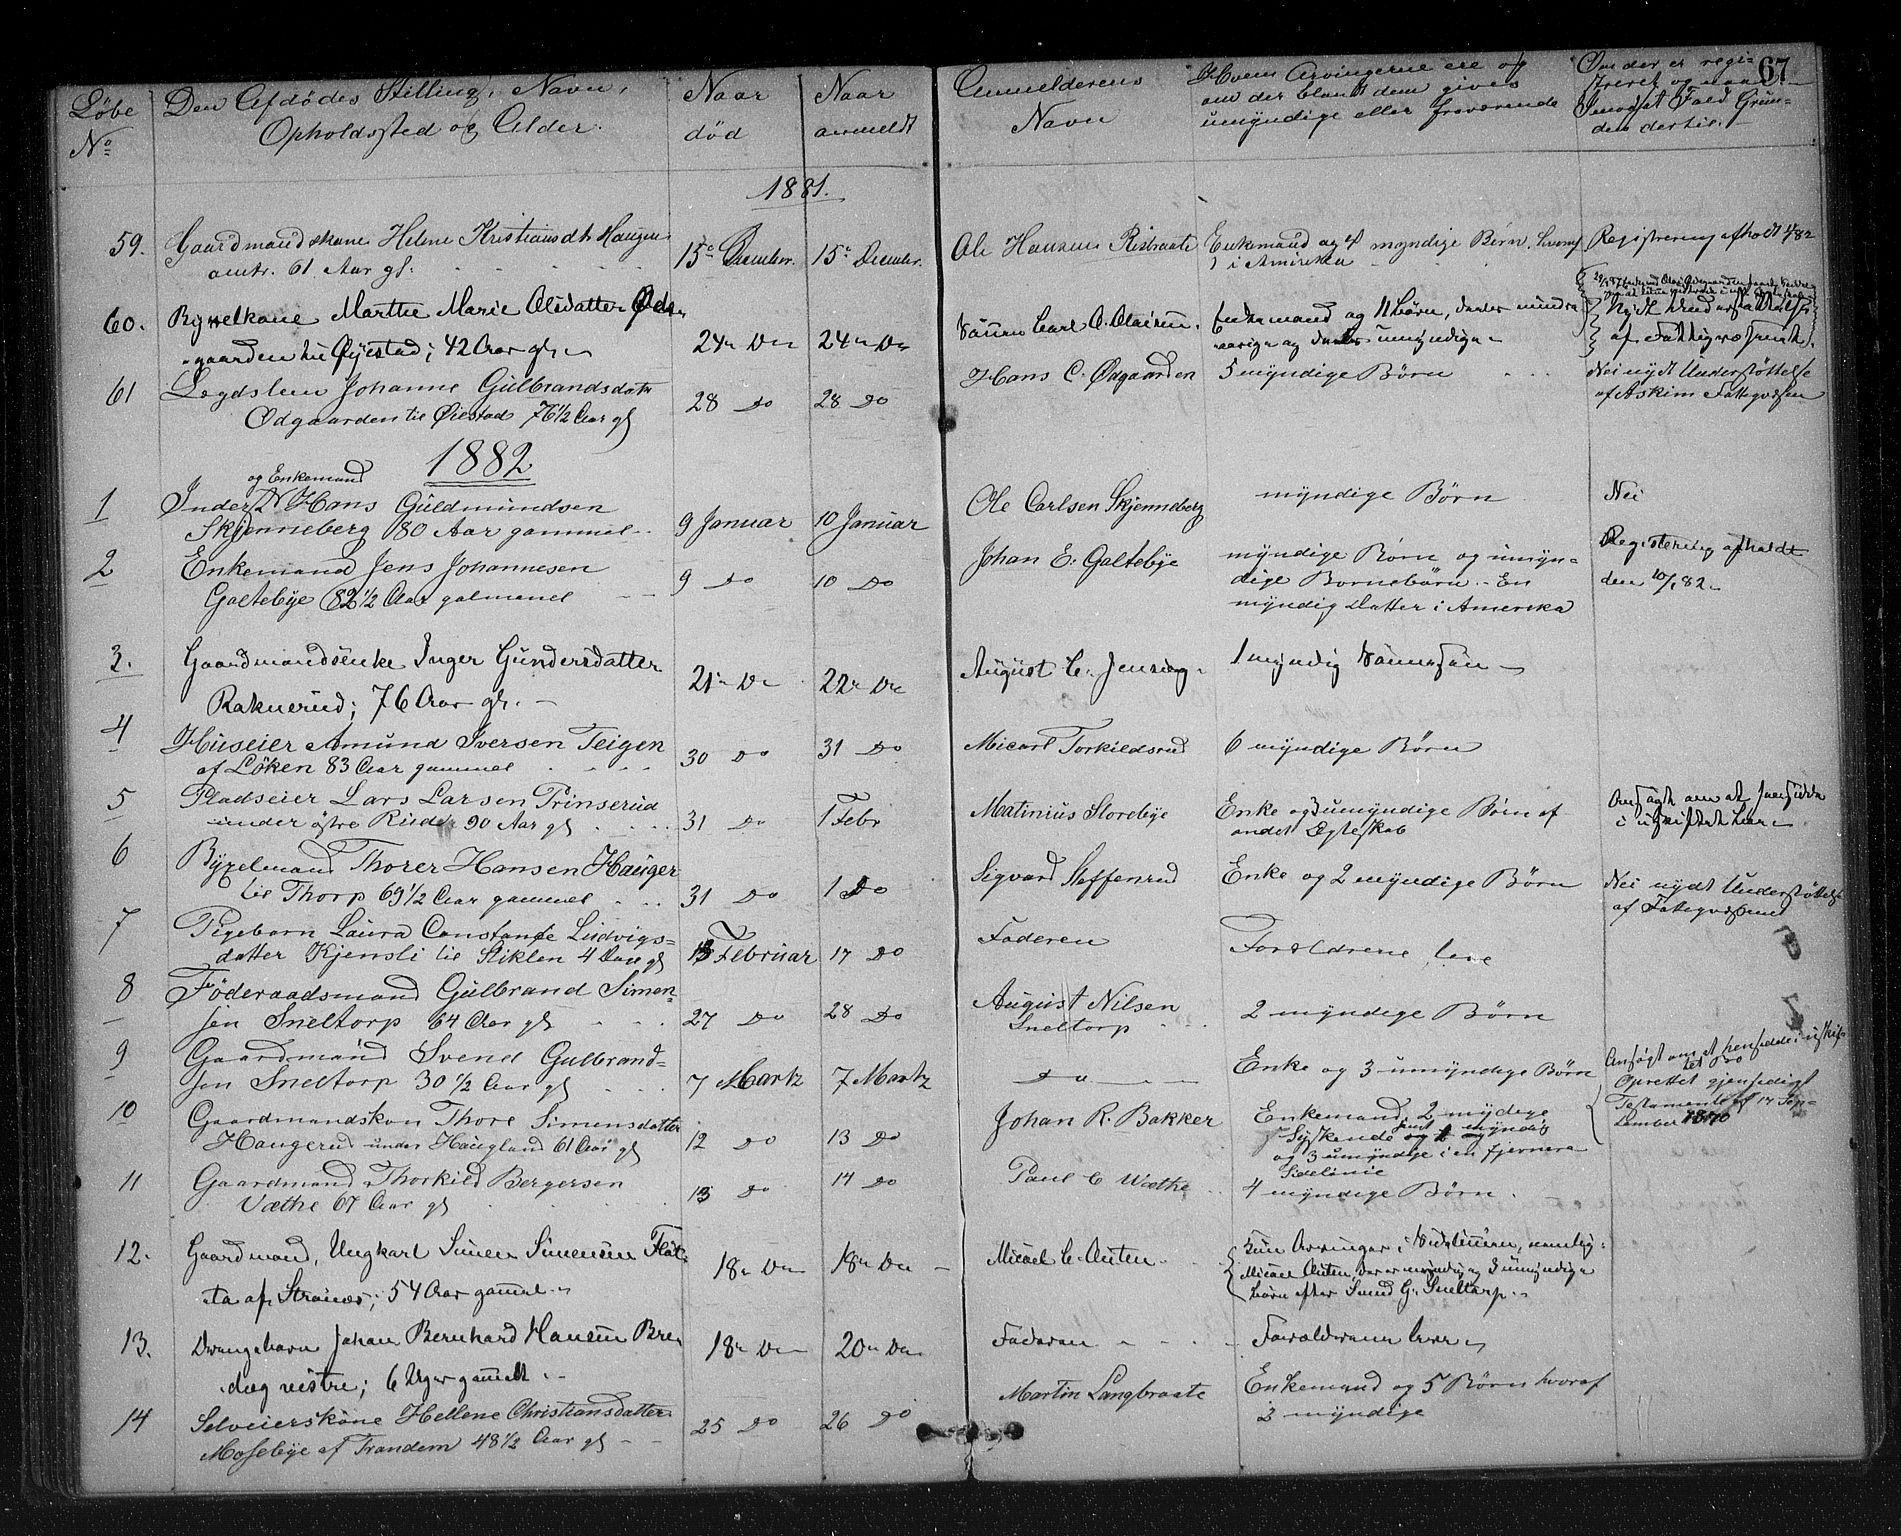 67
Löbe
No
Den Afdødes Stilling, Navn,
Opholdssted og Alder.
Naar
død
Naar
anmeldt
Anmelderens
Navn
Hvem Arvingerne ere og
om der blandt dem gives
umyndige eller fraværende
Om der er regi-
streret og naar
I modsat Fald Grun-
den dertil.
1881.
59.
Gaardmandskone Helene Kristiansdt. Haugen
omtr. 61 Aar gl.
15de December.
15de December.
Ole Hansen Ristraate
Enkemand og 4 myndige Børn,
i Amireka
Registrering afholdt 4/82
60.
Bygselkone Marthe Marie Olsdatter Øde-
gaarden til Øyestad; 42 Aar gl.
24de Do
24de Do
Sønnen Carl O. Olaisen.
Enkemand og 11 børn,
umyndige
Nydt Understøttelse
af Fattigvæsenet.
61
Legdslem Johanne Gulbrandsdatr
Ødgaarden til Øiestad 76 1/2 Aar gl
28 Do
28 Do
Hans C. Ødgaarden
5 myndige Børn
Nei nydt Understøttelse
af Askim Fattigvæsen
1882
1
og Enkemand
Inderst Hans Guldmundsen
Skjønneberg 80 Aar gammel
9 Januar
10 Januar
Ole Carlsen Skjenneberg
myndige Børn
Nei
2
Enkemand Jens Johannesen
Galtebye 82 1/2 Aar galmmel
9 Do
10 Do
Johan E. Galtebye
myndige Børn og umyn-
dige Bornebörn. En
myndig Datter i Amerika
Registering afholdt
den 10/82
3.
Gaardmandsenke Inger Gundersdatter
Raknerud; 76 Aar gl.
21de Do
22de Do
August C. Jensing
1 myndig Sønnesøn
4
Huseier Amund Iversen Teigen
af Löken 83 Aar gammel
30 Do
31 Do
Micael Torkildsrud
6 myndige Børn
5
Pladseier Lars Larsen Prinserud
under østre Rud 90 Aar gl
31 Do
1 Febr
Matinius Storebye
Enke og 3 umyndige Børn af
andet Ægteskab
Ansøgt om at hensidde
i uskiftet bo
6
Bygselmand Thorer Hansen Hauger
til Thorp 69 1/2 Aar gammel
31 Do
1 Do
Sigvard Steffenrud
Enke og 2 myndige Børn
Nei nydt Understøttelse
af Fattigvæsenet
7
Pigebarn Laura Constance Ludvigs-
datter Kjensli til Stiklen 4 Aar gl
13 Februar
17 Do
Faderen
Forældrene leve
8
Föderaadsmand Gulbrand Simen-
sen Sneltorp 64 Aar gl
27 Do
28 Do
August Nilsen
Sneltorp
2 myndige Børn
9
Gaardmand Svend Gulbrand-
sen Sneltorp 30 1/2 Aar gl
7 Martz
7 Martz
Do
Enke og 3 umyndige Børn
Ansøgt om at hensidde i uskif-
tet Bo
10
Gaardmandskon Thore Simensdatter
Haugerud under Haugland 61 Aar gl
12 Do
13 Do
Johan R. Bakker
Enkemand, 2 mydige
Syskende samt 1 myndig
og 3 umyndige i en fjernere
Sidelinie
Oprettet gjensidigt
Testamente af 17 Sep-
tember 1870
11
Gaardmand Thorkild Bergersen
Væthe 67 Aar gl
13 Do
14 Do
Paul C Wæthe
4 myndige Børn.
12.
Gaardmand, Ungkarl Simen Simensen Flat-
ta af Strønes; 54 Aar gammel.
18de Do
18de Do
Micael C. Outen
Kun Arvinger i Sidelinien, nemlig
Micael Outen, der er myndig og 3 umyndige
børn efter Svend G. Sneltorp.
13.
Drengebarn Johan Bernhard Hansen Bre-
deg vestre; 6 Uger gammelt
18de Do
20de Do
Faderen
Forældrene lever
14
Selveierskone Hellene Christiansdatter
Mosebye af Trandem 48 1/2 Aar gl
25 Do
26 Do
Martin Langbraate
Enkemand og 5 Børn hvoraf
3 myndige